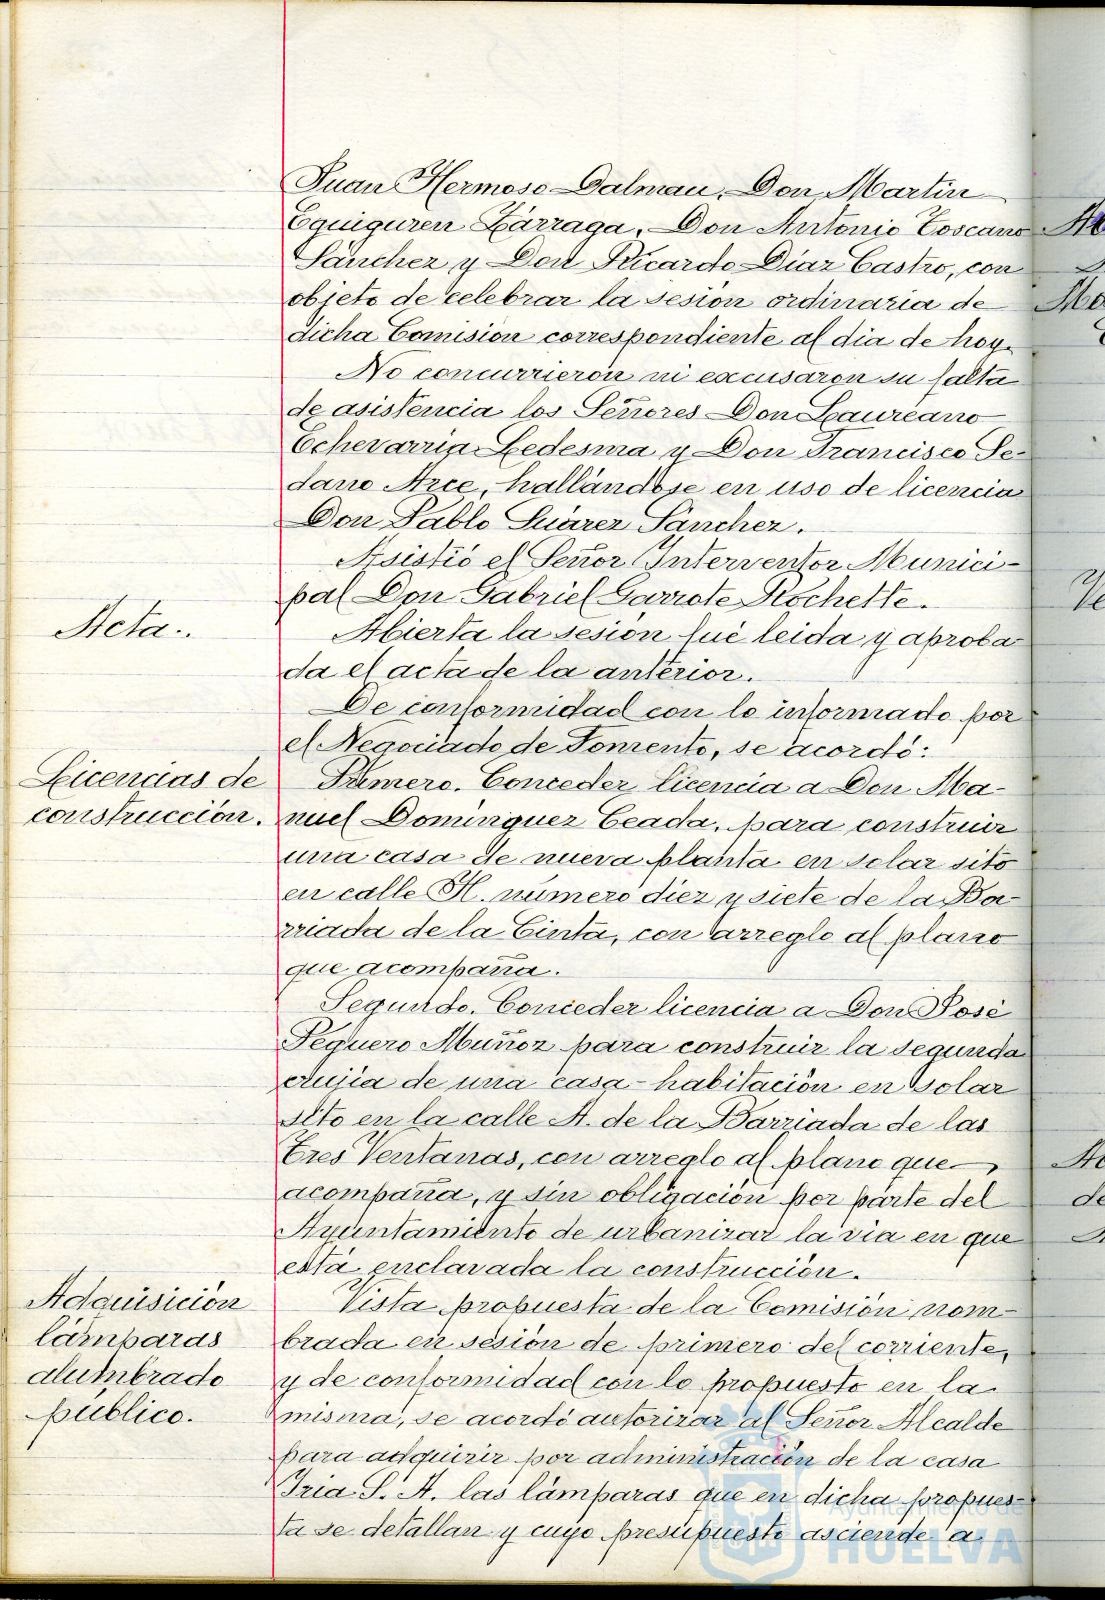 Juan Hermoso Dalmau, Don Martin
Eguiguren Lárraga, Don Antonio Toscano
Sánchez y Don Ricardo Díaz Castro, con
objeto de celebrar la sesión ordinaria de
dicha Comisión correspondiente al dia de hoy.
No concurrieron ni excusaron su falta
de asistencia los Señores Don Laureano
Echevarria Ledesma y Don Francisco Se-
dano Arce, hallándose en uso de licencia
Don Pablo Suárez Sánchez.
Asistió el Señor Interventor Munici-
pal Don Gabriel Garrote Rochette.
Acta.
Abierta la sesión fué leida y aproba
da el acta de la anterior.
De conformidad con lo informado por
el Negociado de Fomento, se acordó:
Licencias de
construcción.
Primero. Conceder licencia a Don Ma-
nuel Dominguez Ceada, para construir
una casa de nueva planta en solar sito
en calle H. número diez y siete de la Ba-
rriada de la Cinta, con arreglo al plano
que acompaña.
Segundo. Conceder licencia a Don José
Peguero Muñoz para construir la segunda
crujia de una casa-habitación en solar
sito en la calle A. de la Barriada de las
Tres Ventanas, con arreglo al plano que
acompaña, y sin obligación por parte del
Ayuntamiento de urbanizar la via en que
está enclavada la construcción.
Adquisición
lámparas
alumbrado
público.
Vista propuesta de la Comisión nom-
brada en sesión de primero del corriente,
y de conformidad con lo propuesto en la
misma, se acordó autorizar al Señor Alcalde
para adquirir por administración de la casa
Iria S. A. las lámparas que en dicha propues-
ta se detallan y cuyo presupuesto asciende a
Ayuntamiento de
HUELVA